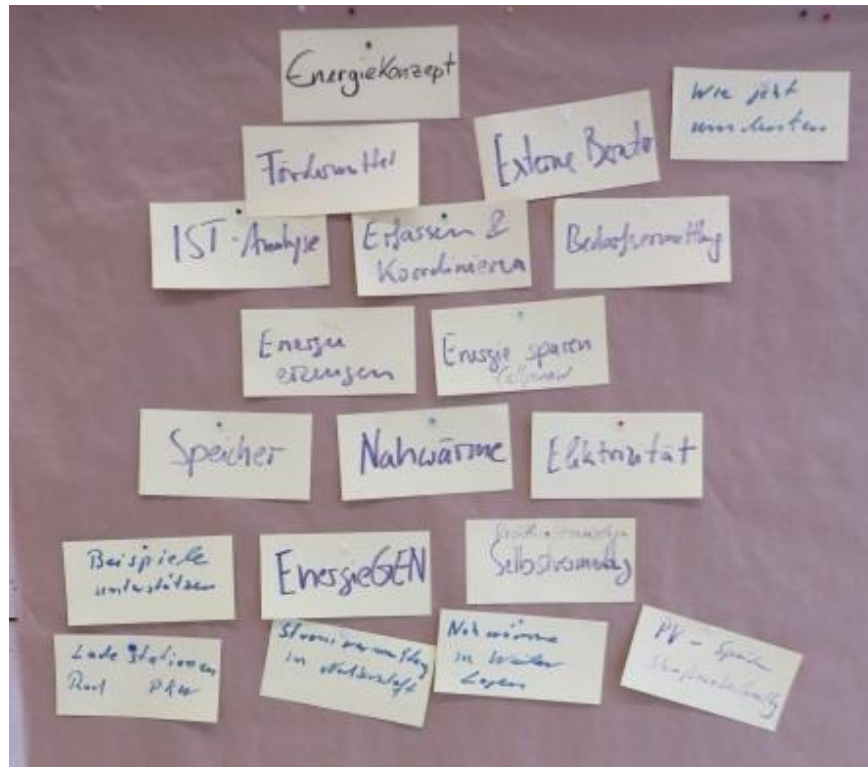 Energiekonzept
Wie jetzt
Fördermittel
Externe Berater
IST-Analyse
Erfassen &
Koordinieren
Bedarfsermittlg
Energie
erzeugen
Energie sparen
Speicher
Nahwärme
Elektrizität
Beispiele
unterstützen
EnergieGEN
Lade Stationen
Rad PKW
in
Nahwärme
in Weiler
Lagen
PV - Speicher